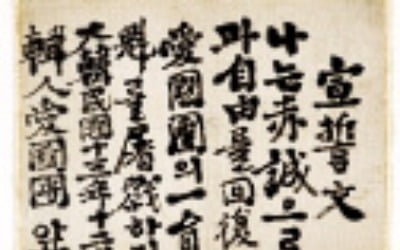 宣誓文
나는赤誠으로
과自由를回復
愛國團의一員
魁를屠戮하
大韓民國十三年十二
韓人愛國團앞